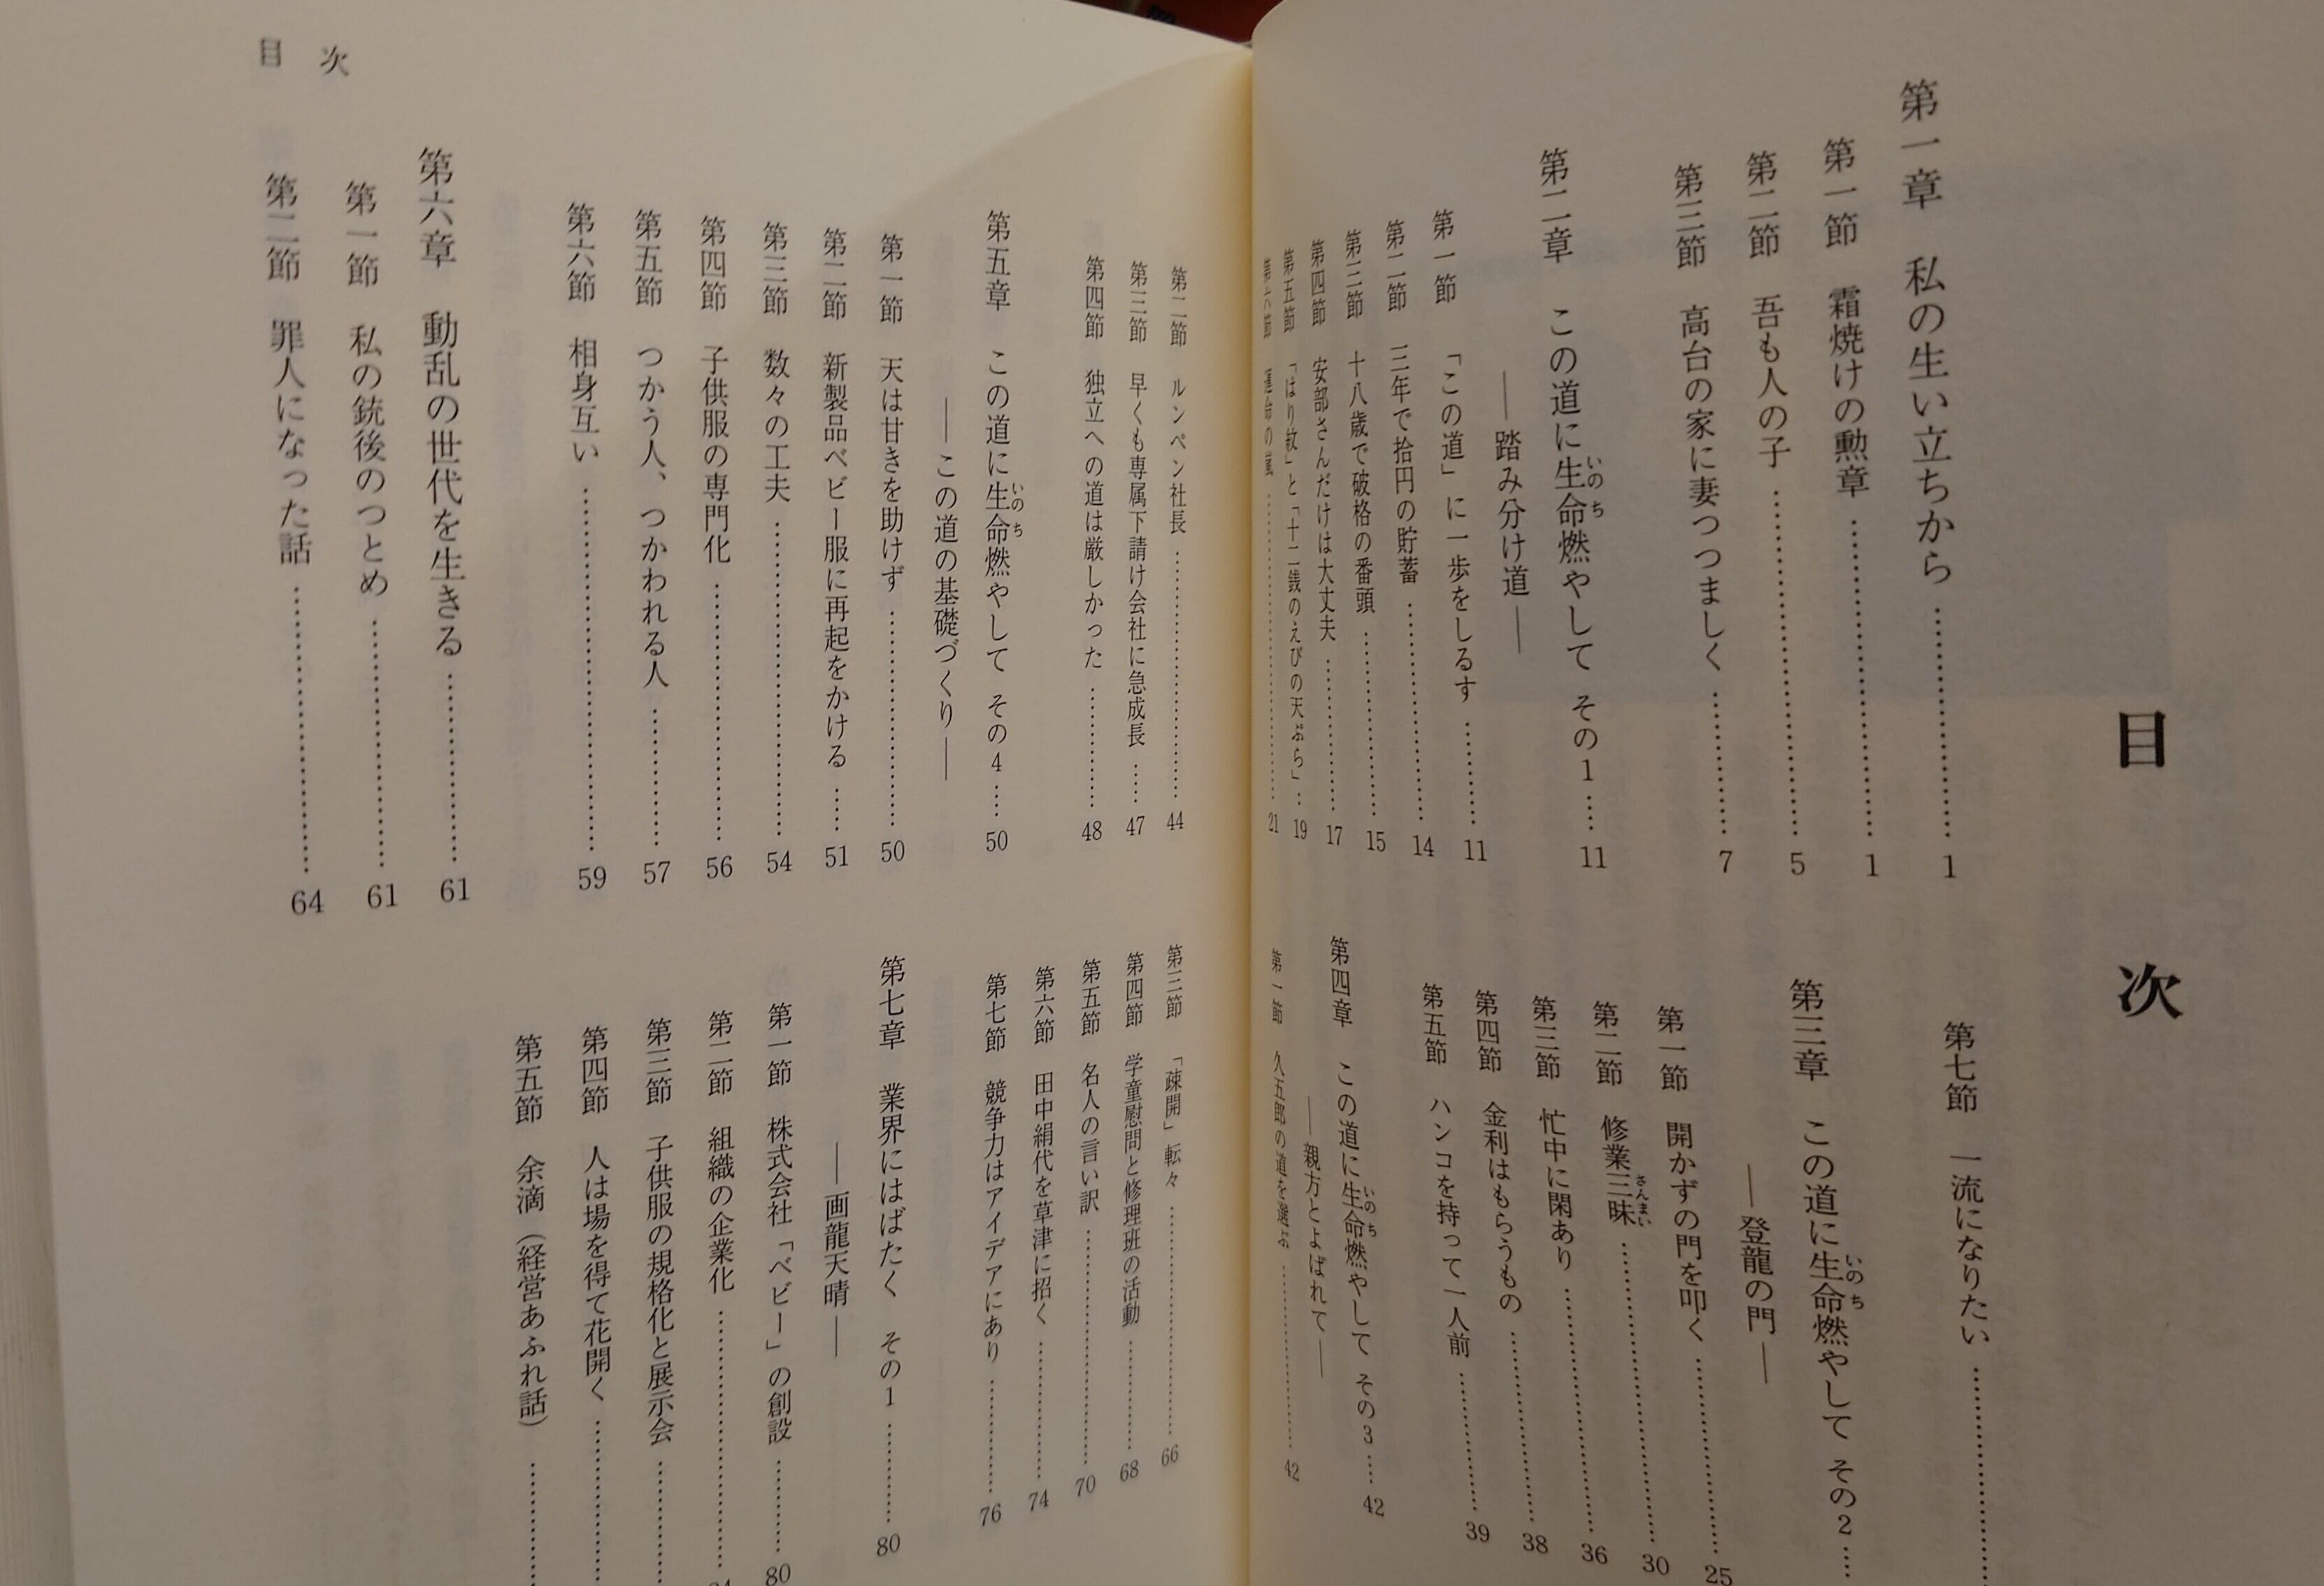 目次
第一章　私の生い立ちから……………1
第一節　霜焼けの勲章……………1
第二節　吾も人の子……………5
第三節　高台の家に妻つつましく……………7
第二章　この道に生命燃やして　その1……11
いのち
―踏み分け道―
第一節　「この道」に一歩をしるす……………11
第二節　三年で拾円の貯蓄……………14
第三節　十八歳で破格の番頭……………15
第四節　安部さんだけは大丈夫……………17
第五節　「はり紋」と「十二銭のえびの天ぷら」…19
第六節　運命の嵐……………21
第七節　一流になりたい……………
第三章　この道に生命燃やして　その2……
いのち
―登龍の門―
第一節　開かずの門を叩く……………25
第二節　修業三昧……………30
さんまい
第三節　忙中に閑あり……………36
第四節　金利はもらうもの……………38
第五節　ハンコを持って一人前……………39
第四章　この道に生命燃やして　その3……42
いのち
―親方とよばれて―
第一節　久五郎の道を選ぶ……………42
目次
第二節　ルンペン社長……………44
第三節　早くも専属下請け会社に急成長……47
第四節　独立への道は厳しかった……………48
第五章　この道に生命燃やして　その4……50
いのち
―この道の基礎づくり―
第一節　天は甘きを助けず……………50
第二節　新製品ベビー服に再起をかける……51
第三節　数々の工夫……………54
第四節　子供服の専門化……………56
第五節　つかう人、つかわれる人……………57
第六節　相身互い……………59
第六章　動乱の世代を生きる……………61
第一節　私の銃後のつとめ……………61
第二節　罪人になった話……………64
第三節　「疎開」転々……………66
第四節　学童慰問と修理班の活動……………68
第五節　名人の言い訳……………70
第六節　田中絹代を草津に招く……………74
第七節　競争力はアイデアにあり……………76
第七章　業界にはばたく　その1……………80
―画龍天晴―
第一節　株式会社「ベビー」の創設……………80
第二節　組織の企業化……………
第三節　子供服の規格化と展示会……………
第四節　人は場を得て花開く……………
第五節　余滴（経営あふれ話）……………